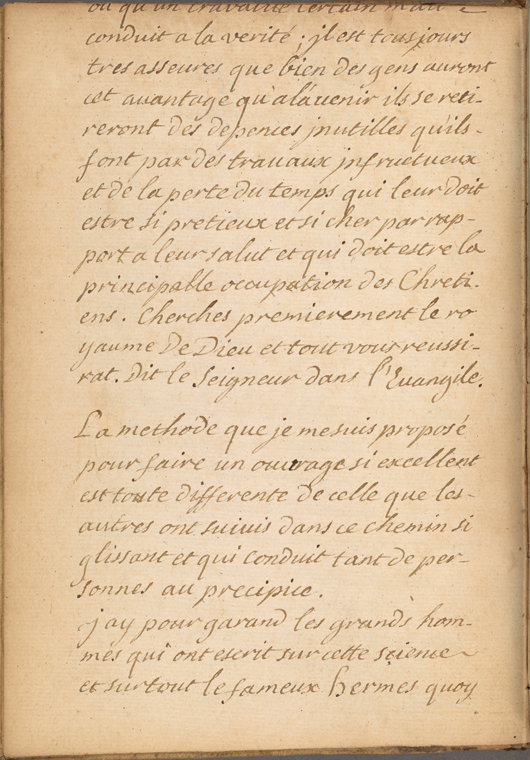 ou qu'un travail certain m'ait
conduit a la verité; jl est tousjours
tres asseures que bien des gens auront
cet avantage qu'al'avenir ils se reti-
reront des depences jnutilles quils-
font par des travaux jnfructueux
et de la perte du temps qui leur doit
estre si pretieux et si cher par rap-
port a leur salut et qui doit estre la
principalle occupation des Chreti-
ens. Cherches premierement le ro
yaume De Dieu et tout vous reussi-
rat. Dit le Seigneur dans l'Evangile.
La methode que je me suis proposé
pour faire un ouvrage si excellent
est toute differente de celle que les-
autres ont suivis dans ce chemin si
glissant et qui conduit tant de per-
sonnes au precipice.
j'ay pour garand les grands hom-
mes qui ont escrit sur cette science
et surtout le fameux hermes quoy